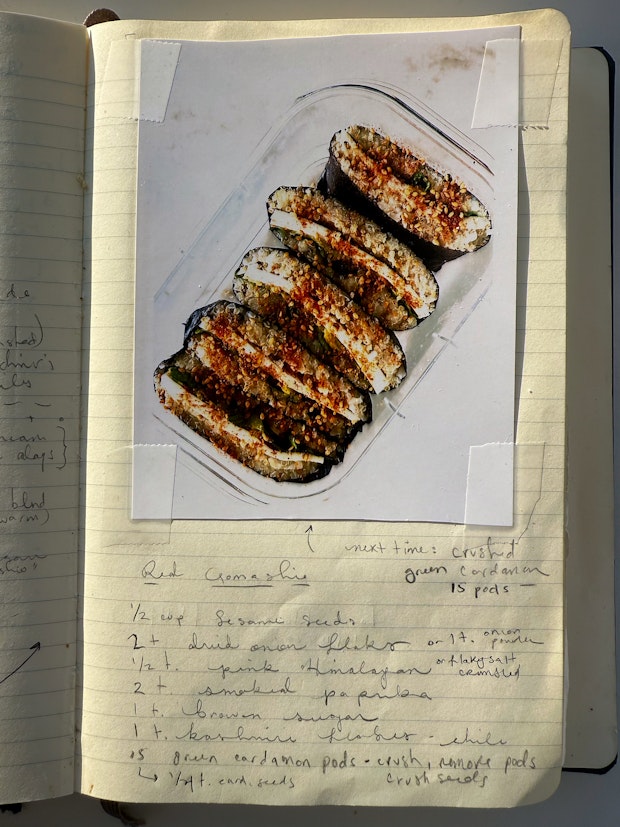 de
alaps }
blnd
warm)
next time: crushed
green cardamon
15 pods —
Red Gomashio
1/2 cup Sesame seeds
2 t dried onion flakes or 1 t. onion powder
1/2 t. pink Himalayan or flaky salt crumbled
2 t. smoked paprika
1 t. brown sugar
1 t. kashmiri flakes - chile
15 green cardamon pods - crush, remove pods
↳ 1/2 t. card. seeds crush seeds